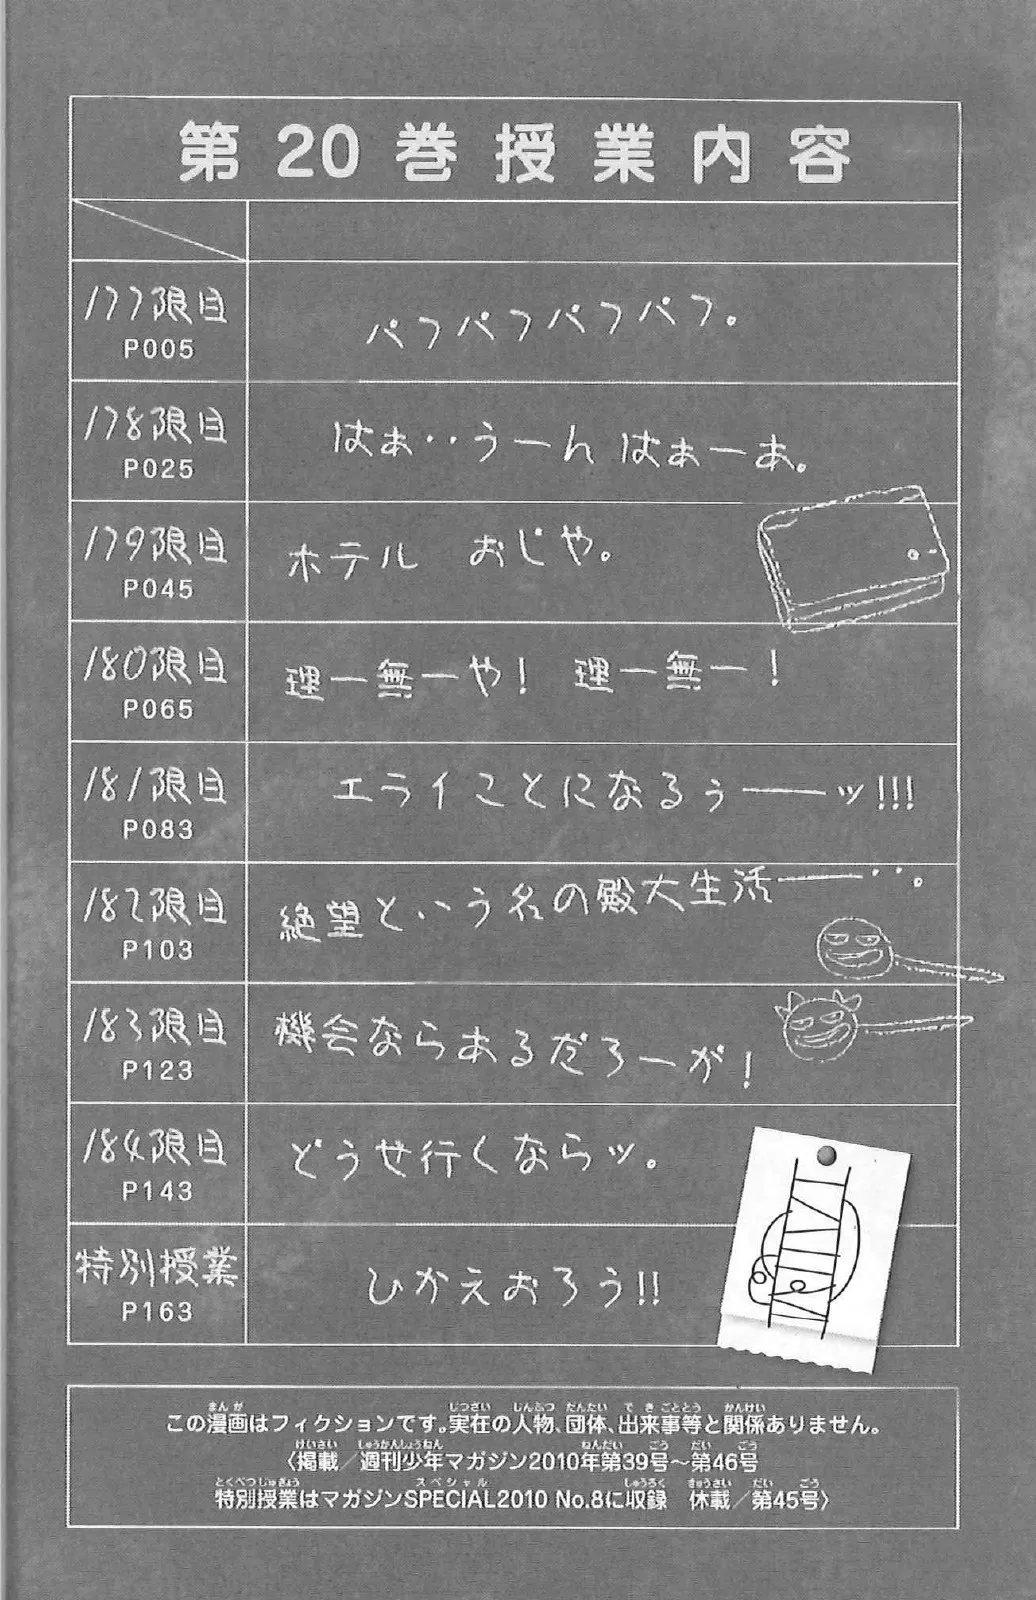 第20巻授業内容
177限目 パフパフパフパフ。
P005
178限目 はぁ‥うーん はぁーあ。
P025
179限目 ホテル おじや。
P045
180限目 理一無一や! 理一無一!
P065
181限目 エライことになるぅ――ッ!!!
P083
182限目 絶望という名の殿大生活――‥。
P103
183限目 機会ならあるだろーが!
P123
184限目 どうせ行くならッ。
P143
特別授業 ひかえおろう!!
P163
この漫画はフィクションです。実在の人物、団体、出来事等と関係ありません。
〈掲載／週刊少年マガジン2010年第39号～第46号
特別授業はマガジンSPECIAL2010 No.8に収録 休載／第45号〉